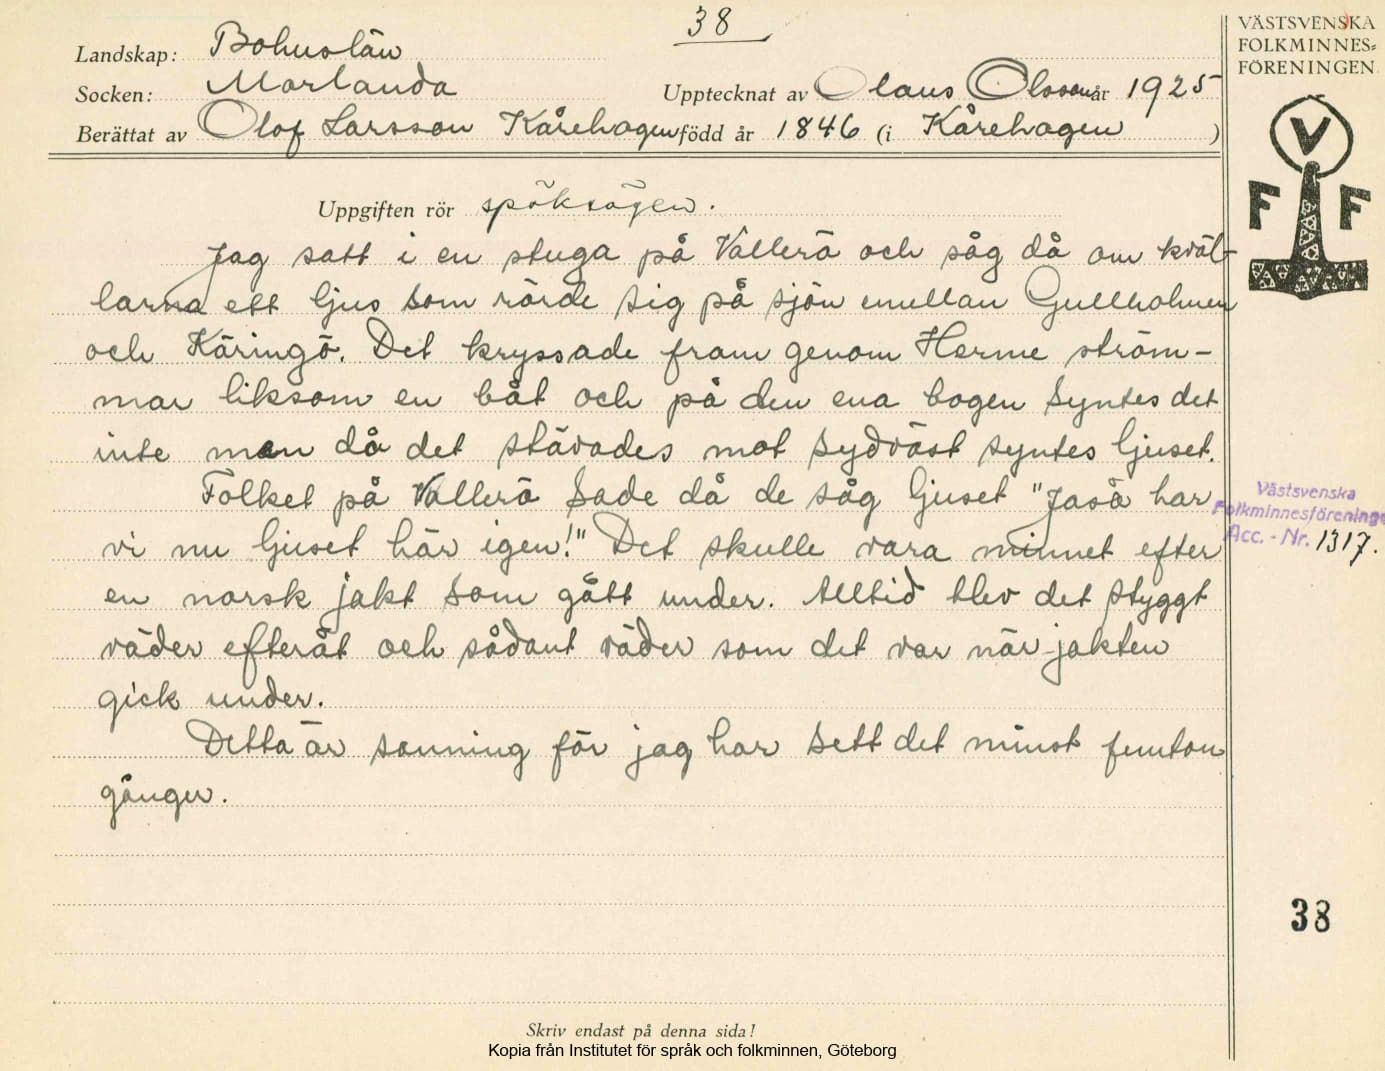 38
Landskap: Bohuslän
Socken: Morlanda
Upptecknat av Olaus Olsson år 1925
Berättat av Olof Larsson Kårehogen född år 1846 (i Kårehogen )
Uppgiften rör spöksägen.
Jag satt i en stuga på Vallerö och såg då om kväl-
larna ett ljus som rörde sig på sjön emellan Gullholmen
och Käringö. Det kryssade fram genom Herme ström-
mar liksom en båt och på den ena bogen syntes det
inte men då det stävades mot sydväst syntes ljuset.
Folket på Vallerö sade då de såg ljuset "Jaså har
vi nu ljuset här igen!" Det skulle vara minnet efter
en norsk jakt som gått under. Alltid blev det styggt
väder efteråt och sådant väder som det var när jakten
gick under.
Detta är sanning för jag har sett det minst femton
gånger.
Skriv endast på denna sida!
Kopia från Institutet för språk och folkminnen, Göteborg
VÄSTSVENSKA
FOLKMINNES=
FÖRENINGEN
V
F F
Västsvenska
Folkminnesföreningen
Acc. - Nr. 1317.
38